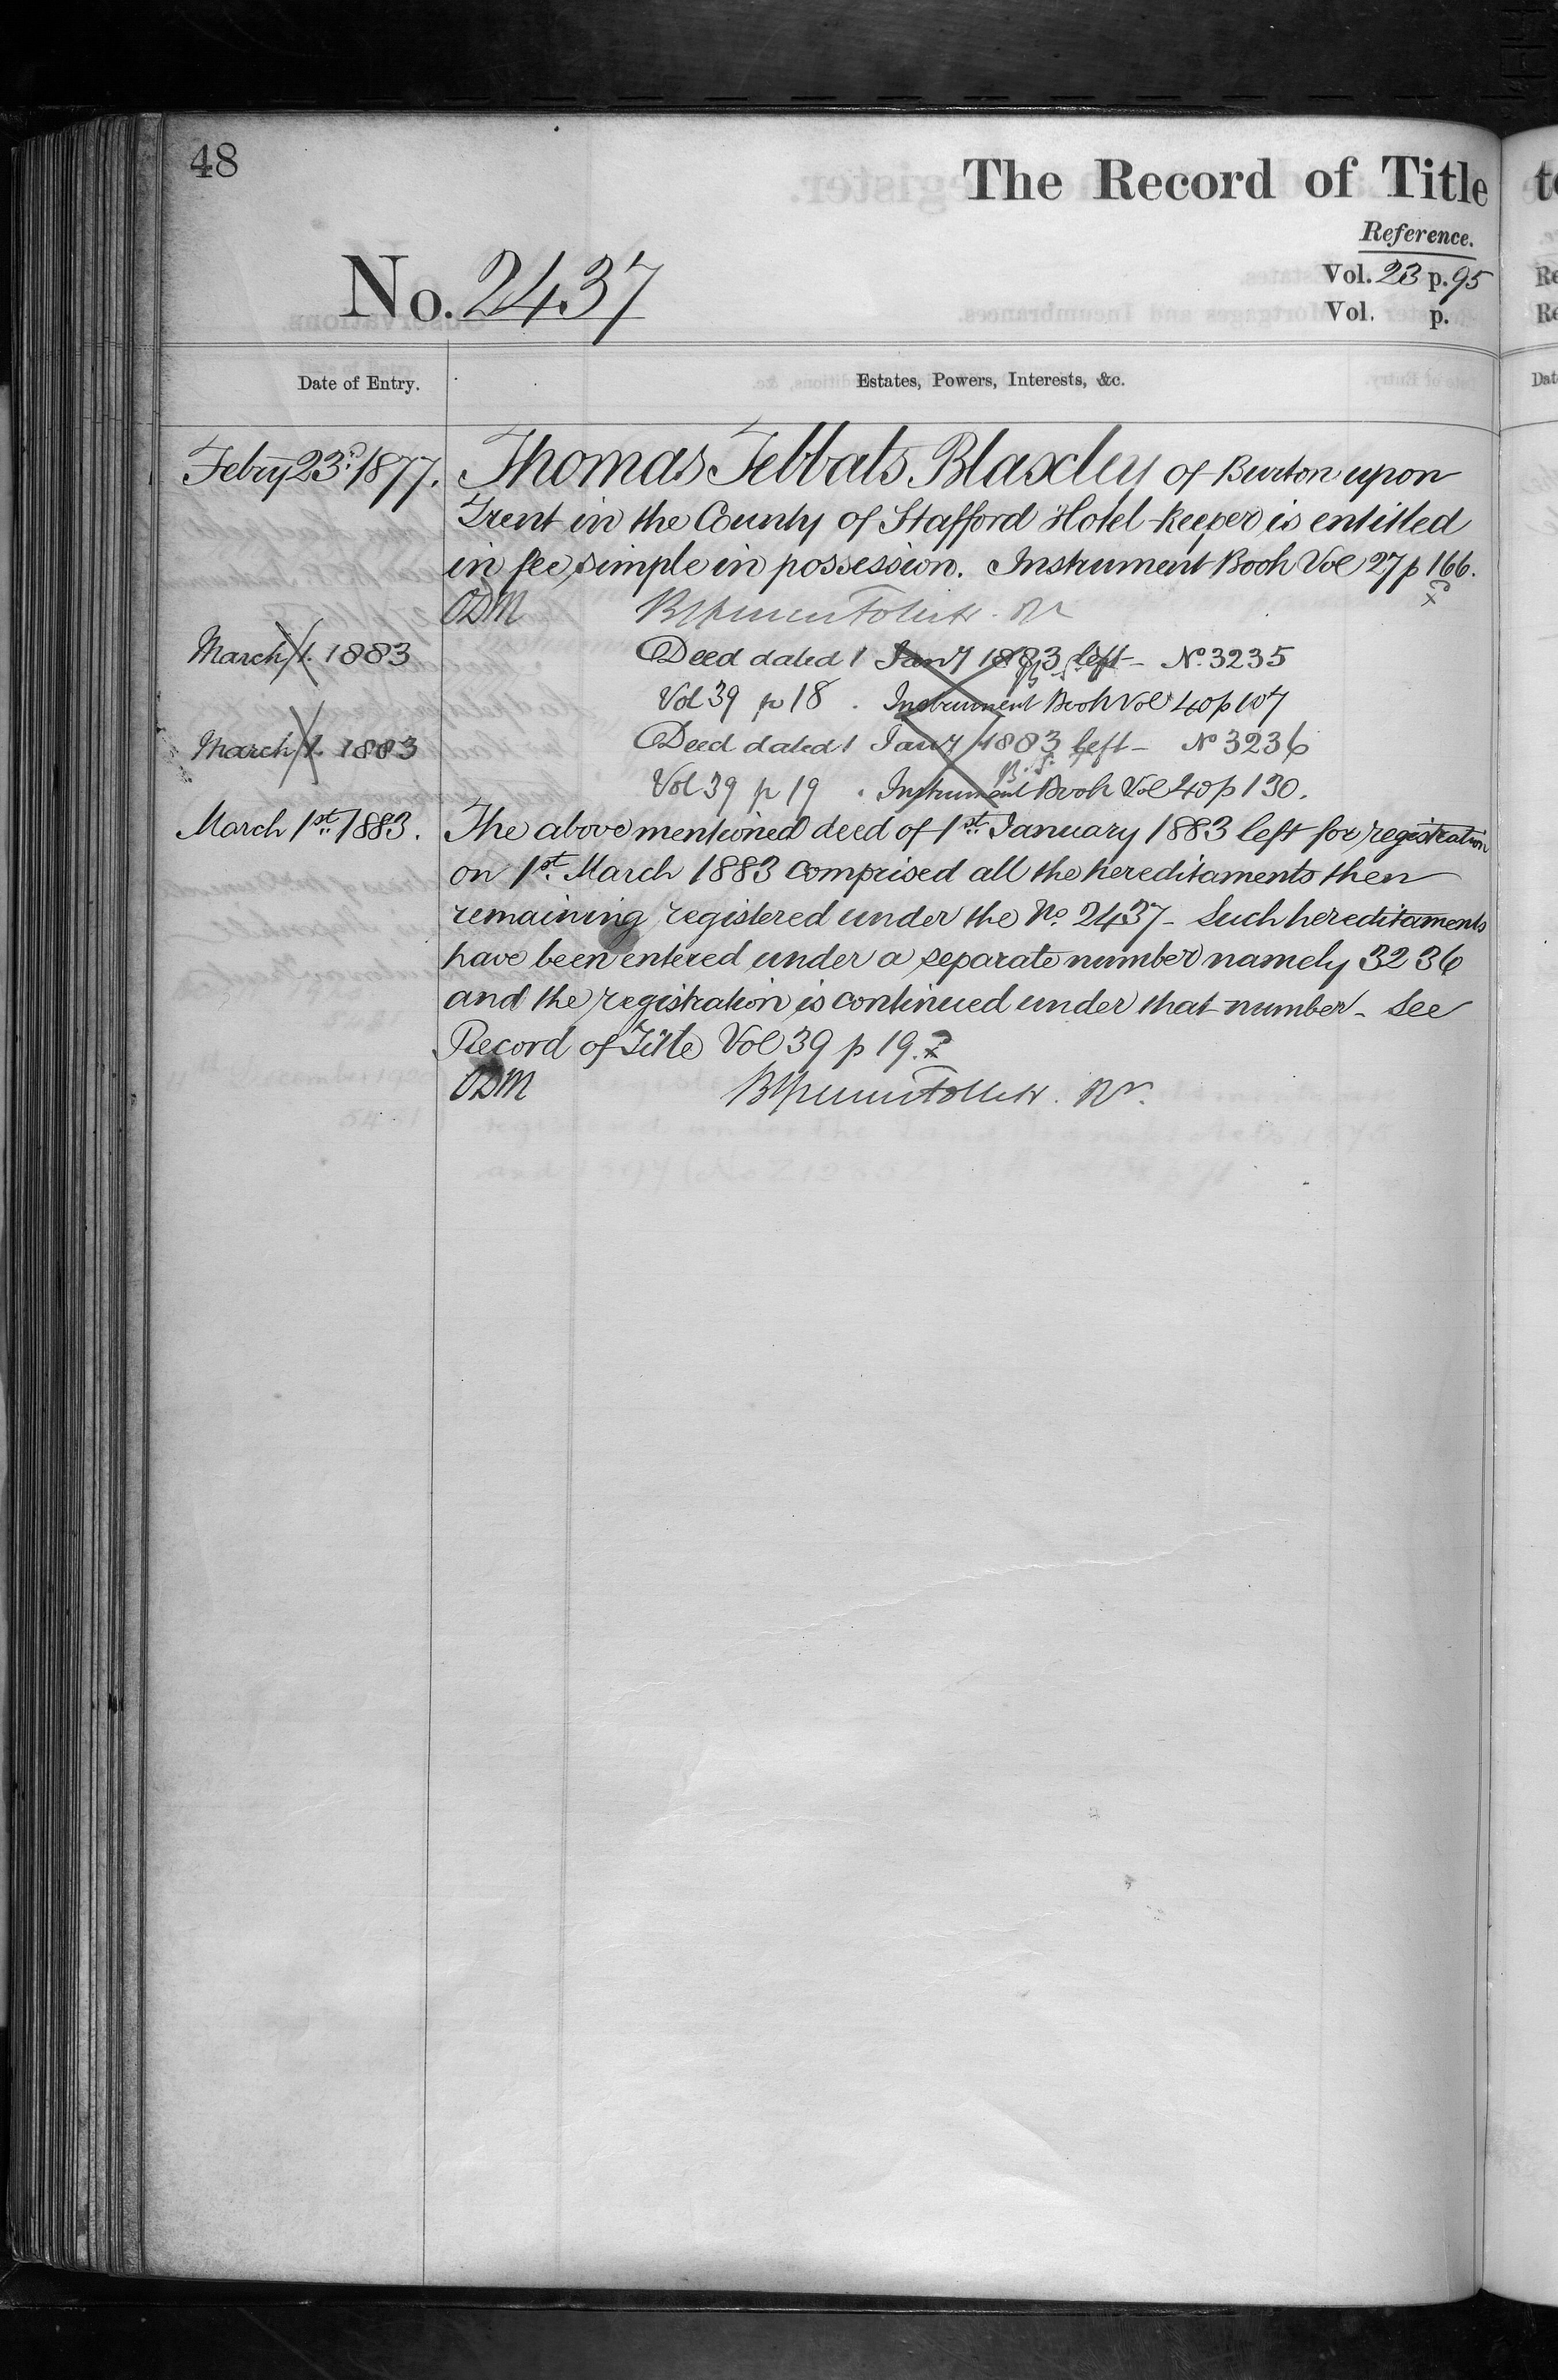 48
The Record of Title
Reference.
No. 2437
Vol. 23 p. 95
Vol. p.
Date of Entry.
Estates, Powers, Interests, &c.
Febry 23rd 1877. Thomas Tebbats Blaxley of Burton upon
Trent in the County of Stafford Hotel-keeper is entitled
in fee simple in possession. Instrument Book Vol 27 p 166.
ODM
March 1. 1883 Deed dated 1 Jany 1883 left - No. 3235
Vol 39 p 18 . Instrument Book Vol 40 p 107
March 1. 1883 Deed dated 1 Jany 1883 left - No 3236
Vol 39 p 19 . Instrument Book Vol 40 p 130.
March 1st 1883. The above mentioned deed of 1st January 1883 left for registration
on 1st March 1883 comprised all the hereditaments then
remaining registered under the No. 2437 - Such hereditaments
have been entered under a separate number namely 3236
and the registration is continued under that number - See
Record of Title Vol 39 p 19.
ODM